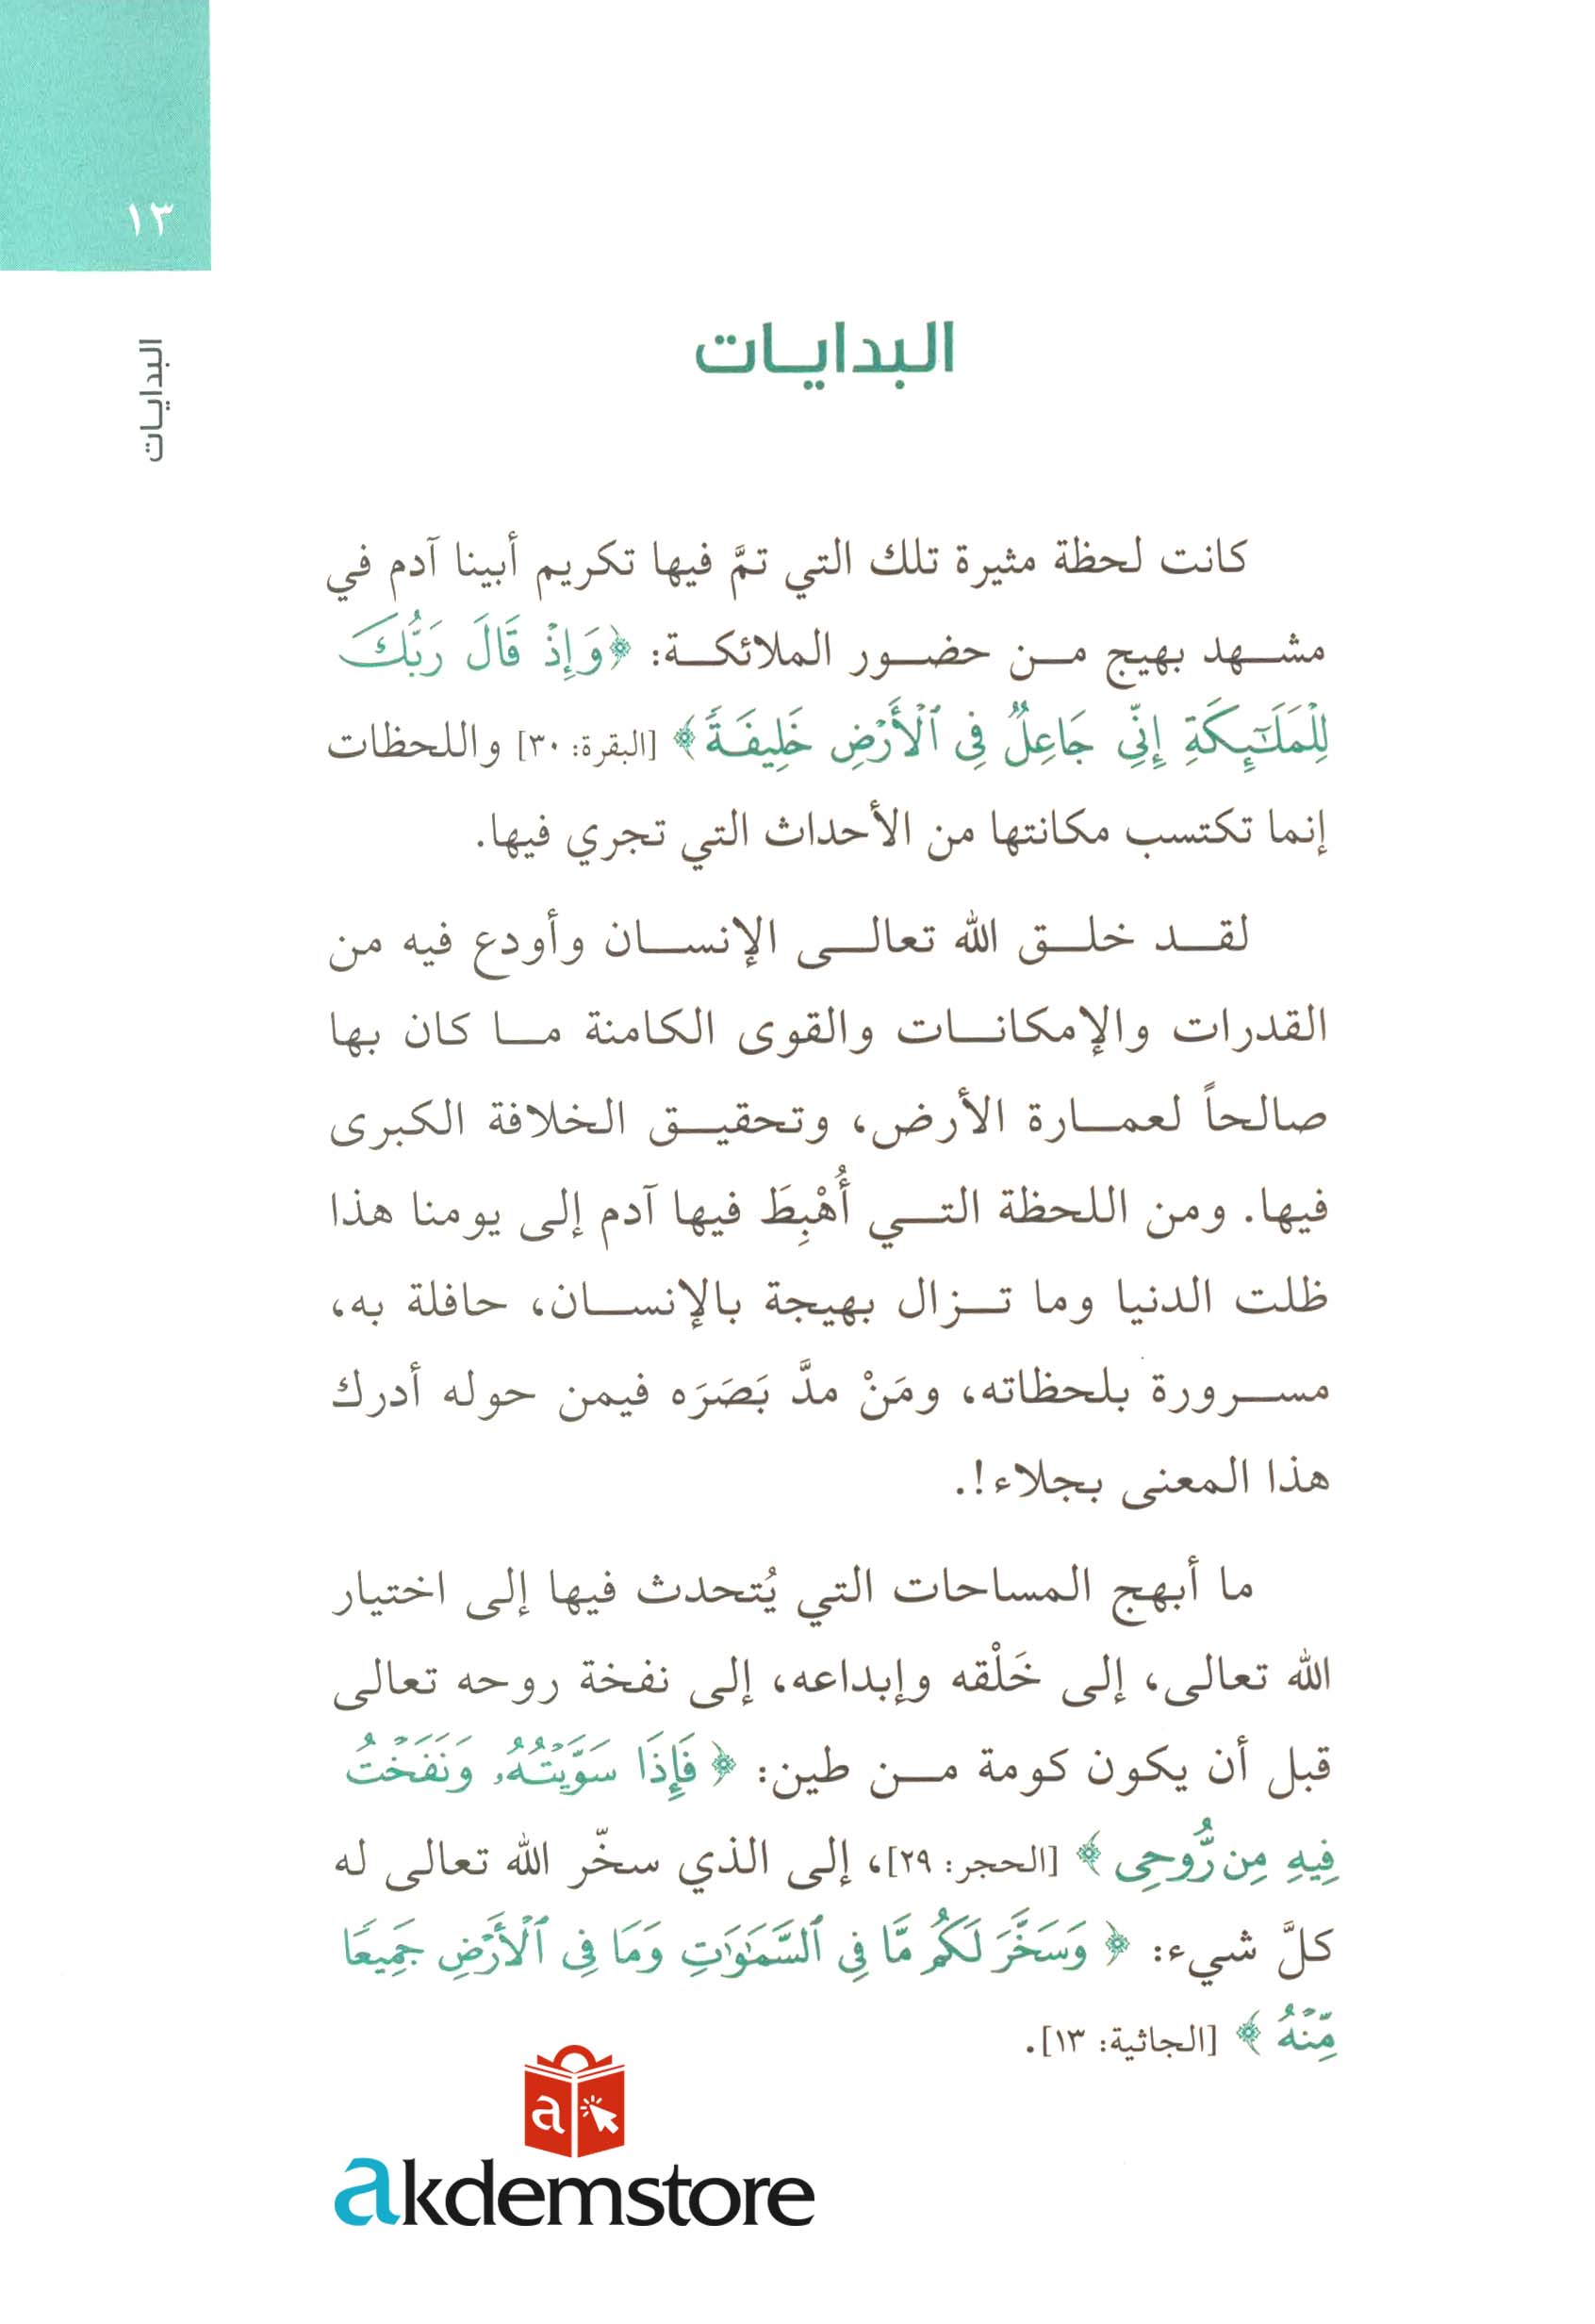 ١٣
البدايات
البدايات
كانت لحظة مثيرة تلك التي تمَّ فيها تكريم أبينا آدم في
مشهد بهيج من حضور الملائكة: ﴿وَإِذْ قَالَ رَبُّكَ
لِلْمَلَٰٓئِكَةِ إِنِّي جَاعِلٌ فِي ٱلْأَرْضِ خَلِيفَةً﴾ [البقرة: ٣٠] واللحظات
إنما تكتسب مكانتها من الأحداث التي تجري فيها.
لقد خلق الله تعالى الإنسان وأودع فيه من
القدرات والإمكانات والقوى الكامنة ما كان بها
صالحاً لعمارة الأرض، وتحقيق الخلافة الكبرى
فيها. ومن اللحظة التي أُهْبِطَ فيها آدم إلى يومنا هذا
ظلت الدنيا وما تزال بهيجة بالإنسان، حافلة به،
مسرورة بلحظاته، ومَنْ مدَّ بَصَرَه فيمن حوله أدرك
هذا المعنى بجلاء!.
ما أبهج المساحات التي يُتحدث فيها إلى اختيار
الله تعالى، إلى خَلْقه وإبداعه، إلى نفخة روحه تعالى
قبل أن يكون كومة من طين: ﴿فَإِذَا سَوَّيْتُهُۥ وَنَفَخْتُ
فِيهِ مِن رُّوحِي﴾ [الحجر: ٢٩]، إلى الذي سخّر الله تعالى له
كلَّ شيء: ﴿وَسَخَّرَ لَكُم مَّا فِي ٱلسَّمَٰوَٰتِ وَمَا فِي ٱلْأَرْضِ جَمِيعًا
مِّنْهُ﴾ [الجاثية: ١٣].
a
akdemstore